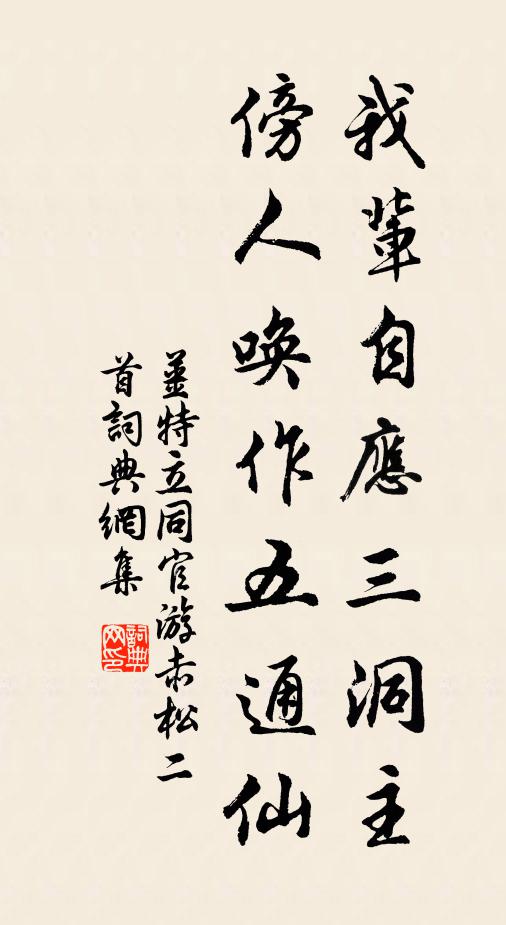 我輩自應三洞主
傍人喚作五通仙
姜特立同官游赤松二
首詞典網集
詞典網印